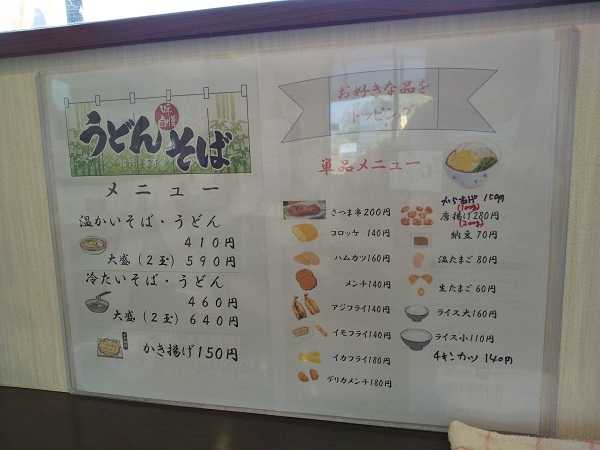 味自慢
うどんそば
メニュー
温かいそば・うどん
410円
大盛(2玉) 590円
冷たいそば・うどん
460円
大盛(2玉) 640円
かき揚げ150円
お好きな品を
トッピング
単品メニュー
さつま串200円
コロッケ 140円
ハムカツ160円
メンチ140円
アジフライ140円
イモフライ140円
イカフライ180円
デリカメンチ180円
から揚げ 150円
(100g)
唐揚げ280円
(200g)
納豆 70円
温たまご 80円
生たまご 60円
ライス大160円
ライス小110円
チキンカツ 140円